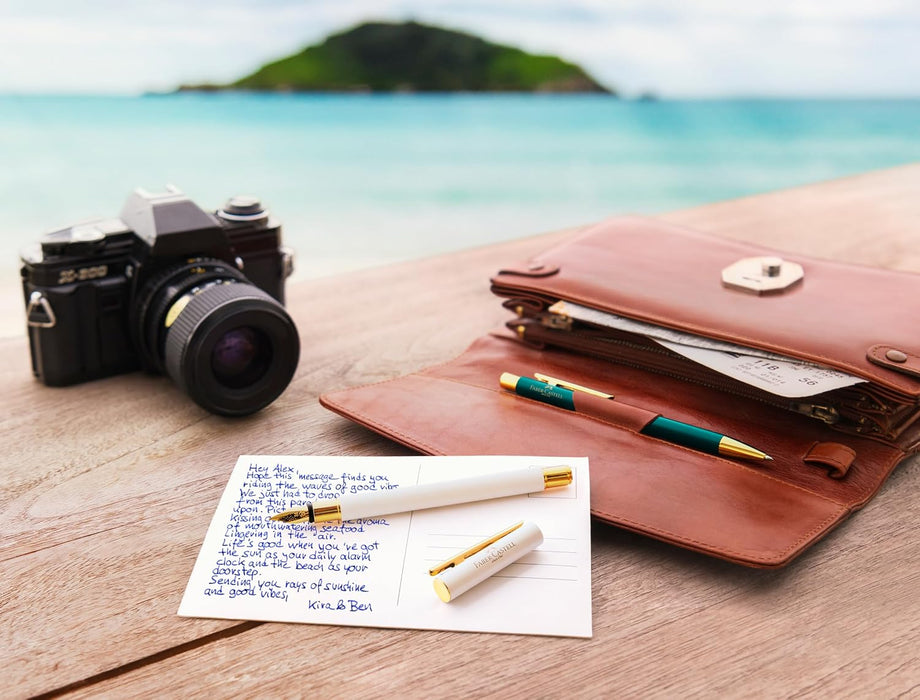 X-300
Hey Alex,
Hope this message finds you
riding the waves of good vibes
We just had to drop
from this par
upon. Pict
kissing the aroma
of mouthwatering seafood
lingering in the air.
Life's good when you've got
the sun as your daily alarm
clock and the beach as your
doorstep.
Sending you rays of sunshine
and good vibes,
Kira & Ben
FABER-CASTELL
FABER-CASTELL
118
56